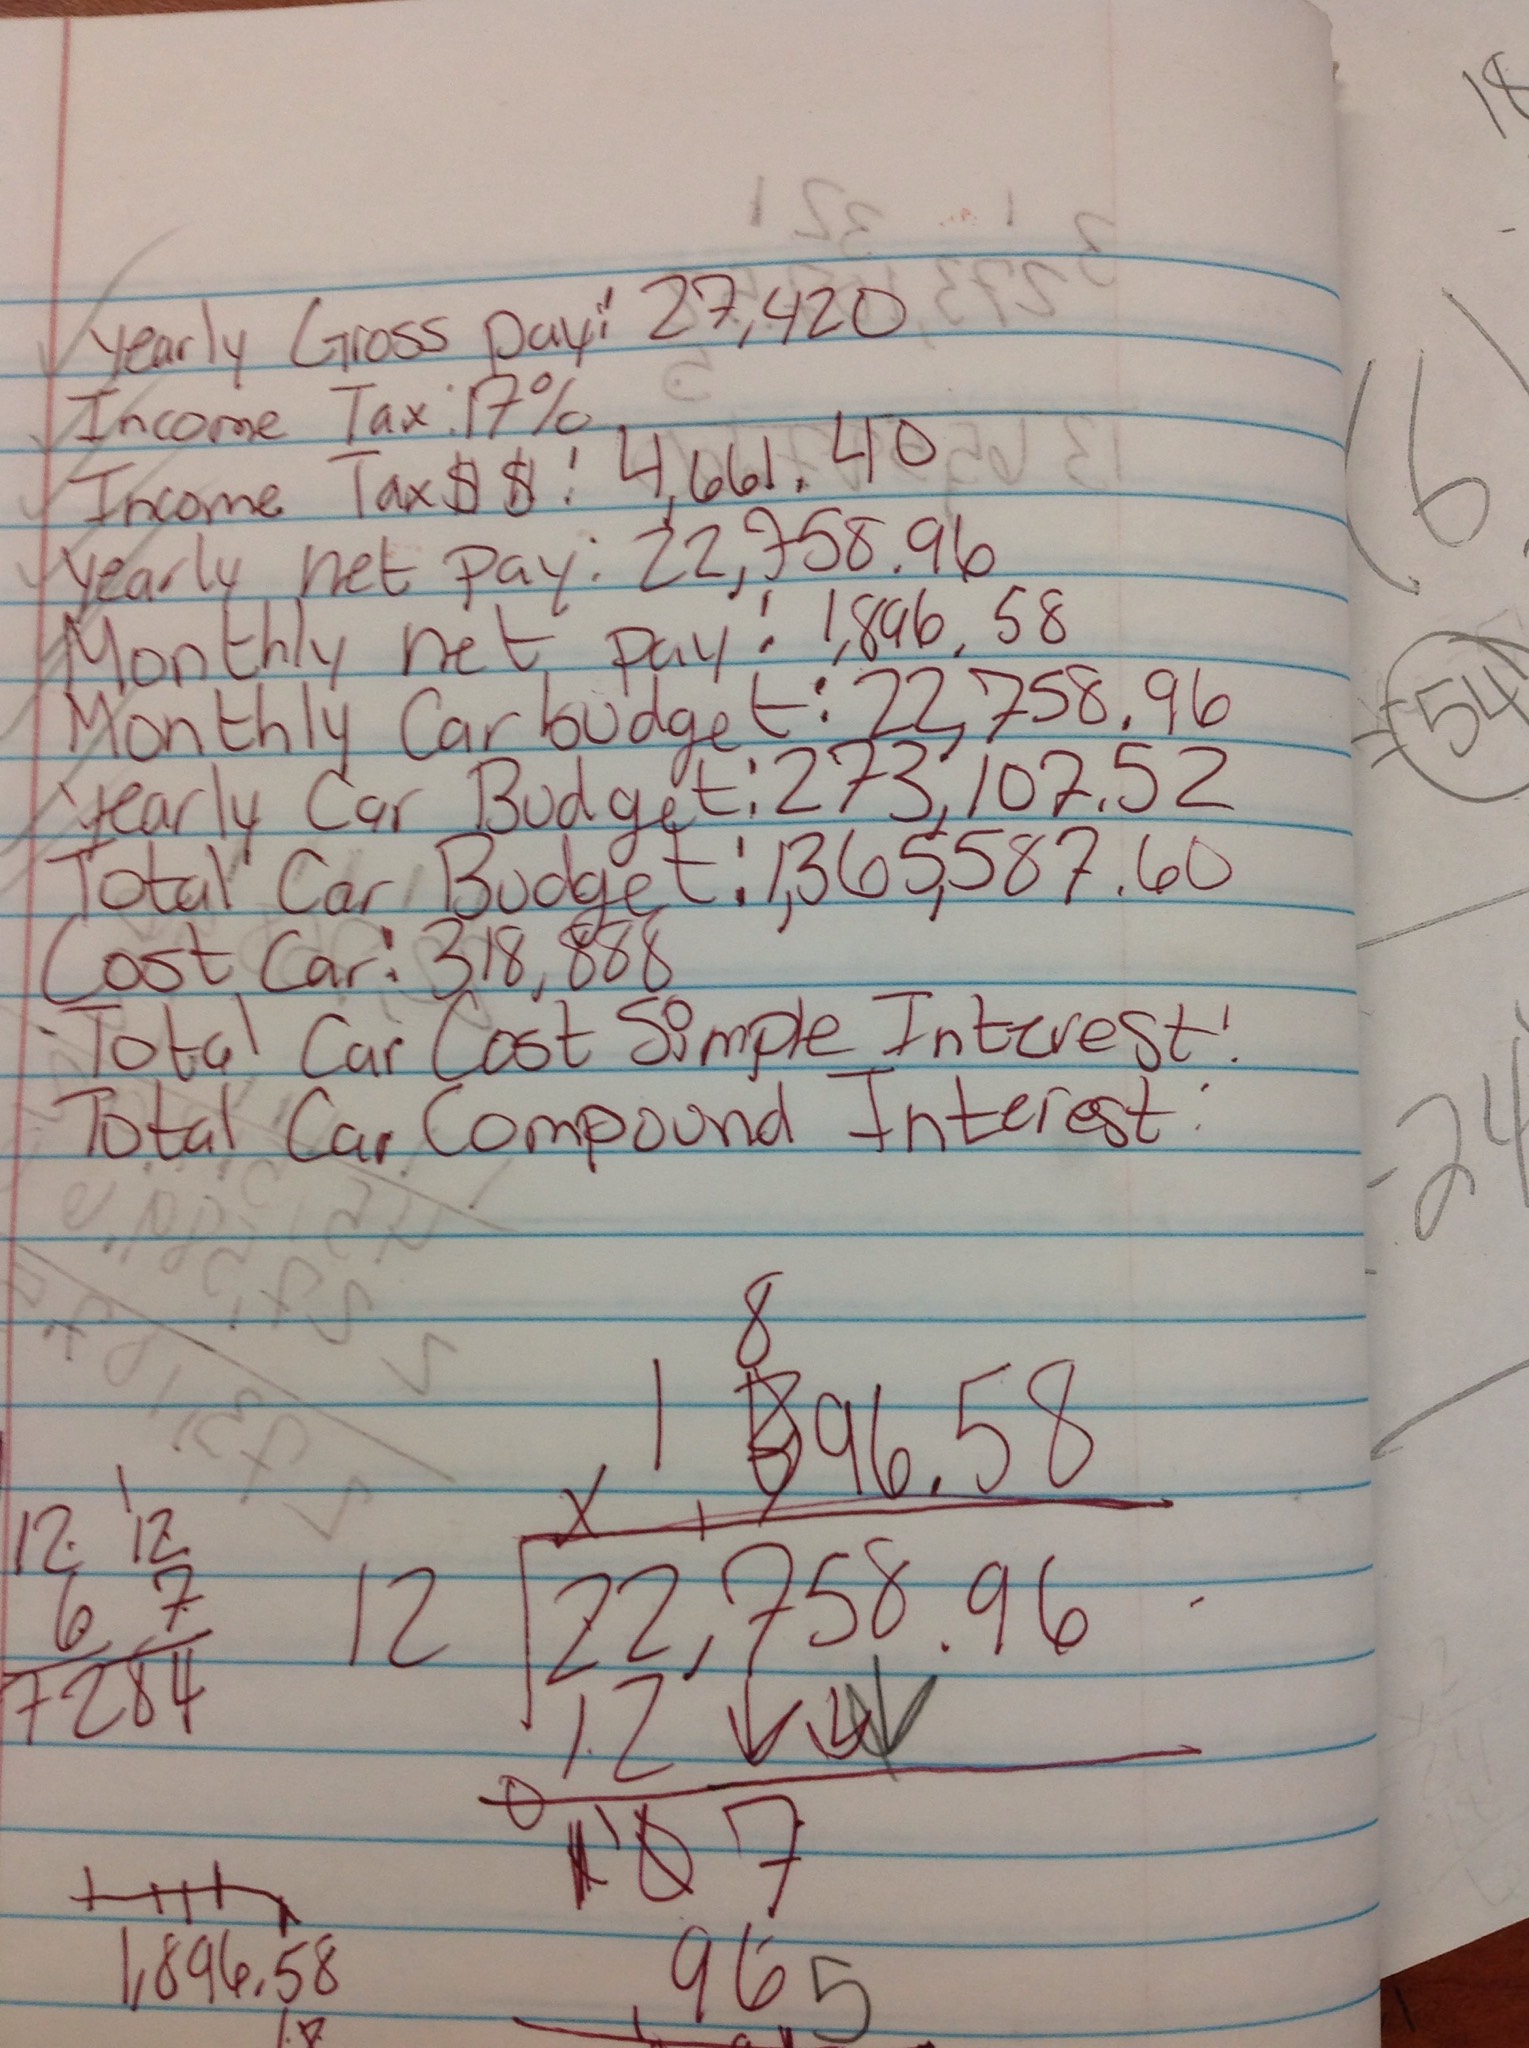 Yearly Gross pay: 27,420
Income Tax: 17%
Income Tax $$: 4,661.40
Yearly net pay: 22,758.96
Monthly net pay: 1,896.58
Monthly Car budget: 22,758.96
Yearly Car Budget: 273,107.52
Total Car Budget: 1,365,587.60
Cost Car: 318,888
Total Car Cost Simple Interest:
Total Car Compound Interest:
8
1 96.58
x
12 22,758.96
12
0
7
96 5
1
12 12
6 7
72 84
1,896.58
18
(6)
=54
-24